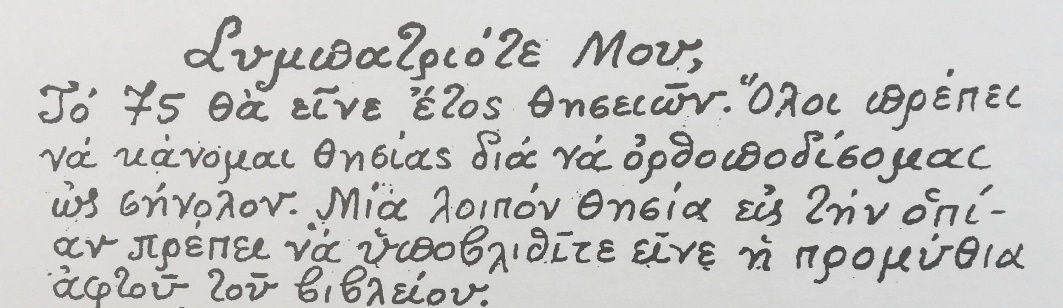 Συμπατριότε Μου,
Τό 75 θὰ εἶνε ἔτος θησειῶν. Ὅλοι πρέπει
νά κάνομαι θησίας διά νά ὀρθοποδίσομαι
ὡς σήνολον. Μία λοιπόν θησία εἰς τήν ὁπί-
αν πρέπει νὰ ὑποβλιθῖτε εἶνε ἡ προμύθια
ἀφτοῦ τοῦ βιβλείου.